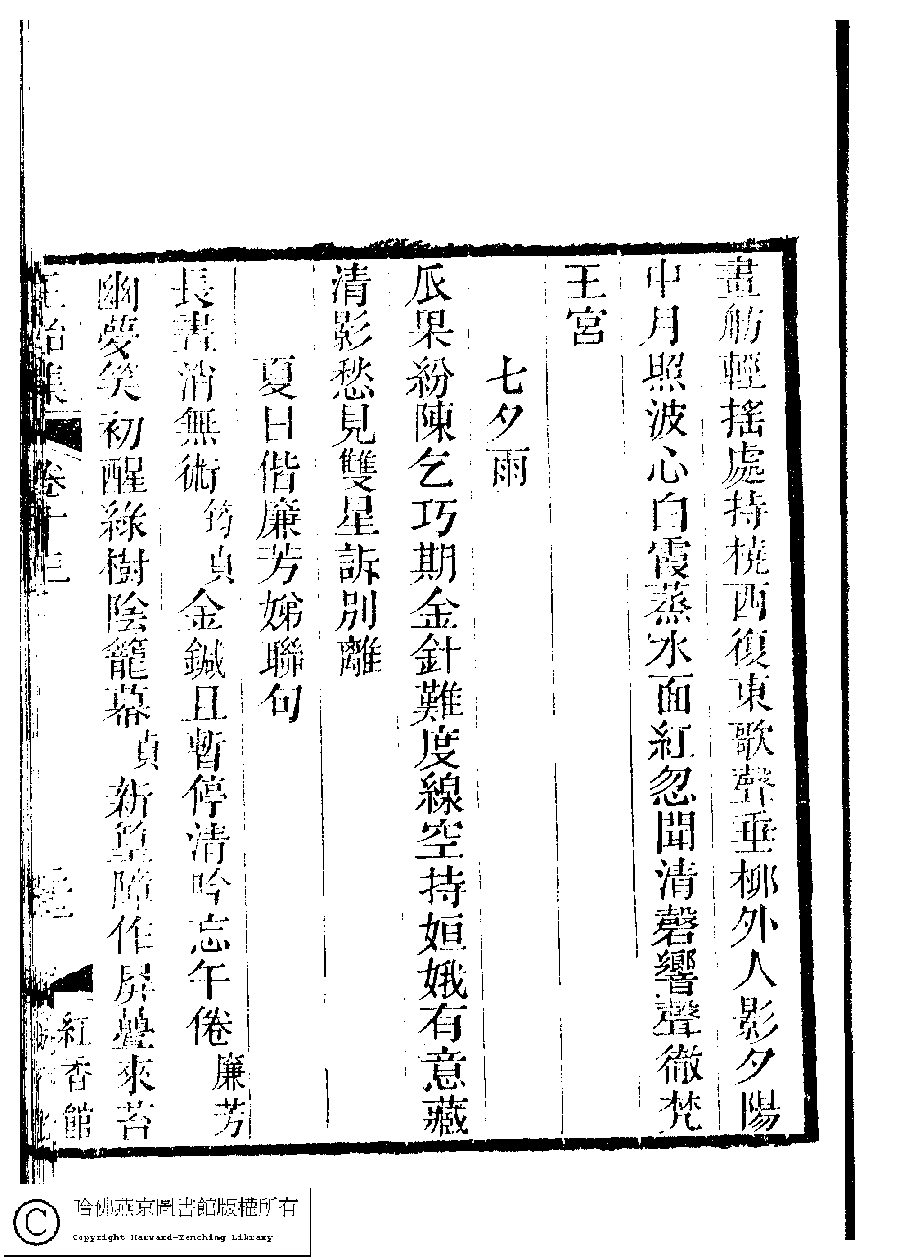 畫舫輕搖處持橈西復東歌聲垂柳外人影夕陽
中月照波心白霞蒸水面紅忽聞清磬響聲徹梵
王宮
七夕雨
瓜果紛陳乞巧期金針難度線空持姮娥有意藏
清影愁見雙星訴別離
夏日偕廉芳娣聯句
長晝消無術筠貞金鍼且暫停清吟忘午倦廉芳
幽夢笑初醒綠樹陰籠幕貞新篁障作屏蘚來苔
正始集 卷十三
紅香館
哈佛燕京圖書館版權所有
Copyright Harvard-Yenching Library